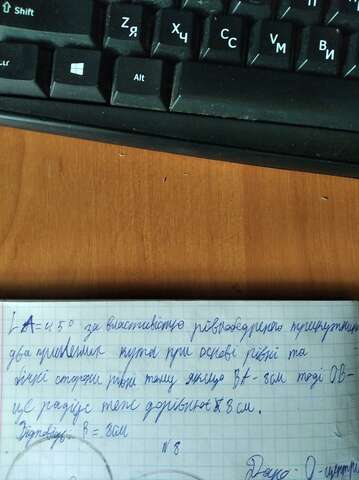 Shift
Z Я
X Ч
C С
V М
B И
Alt
∠A=45° за властивістю рівнобедреного трикутника
два прилеглих кути при основі рівні та
бічні сторони рівні тому якщо BA- 8см тоді OB-
це радіус теж дорівнює 8см.
Відповідь: B = 8см
№8
Дано: O-центр